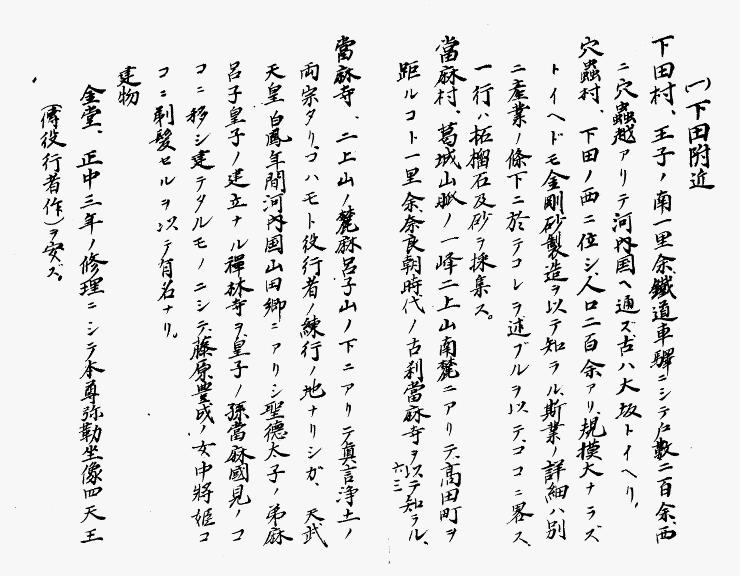 (一)下田附近
下田村、王子ノ南一里余、鐵道車驛ニシテ戸数二百余、西
ニ穴蟲越アリテ河内国ヘ通ズ古ハ大坂トイヘリ、
穴蟲村、下田ノ西ニ位シ、人口二百余アリ、規模大ナラズ
トイヘドモ金剛砂製造ヲ以テ知ラル、斯業ノ詳細ハ別
ニ産業ノ條下ニ於テコレヲ述ブルヲ以テ、ココニ畧ス、
一行ハ柘榴石及砂ヲ採集ス。
當麻村、葛城山脈ノ一峰二上山南麓ニアリテ、高田町ヲ
距ルコト一里余、奈良朝時代ノ古刹當麻寺ヲ以テ知ラル、
六三
當麻寺、二上山ノ麓麻呂子山ノ下ニアリテ真言浄土ノ
両宗タリ、コハモト役行者ノ練行ノ地ナリシガ、天武
天皇白鳳年間河内国山田郷ニアリシ聖徳太子ノ弟麻
呂子皇子ノ建立ナル禪林寺ヲ皇子ノ孫當麻國見ノコ
コニ移シ建テタルモノニシテ、藤原豊成ノ女中將姫コ
コニ剃髪セルヲ以テ有名ナリ。
建物
金堂、正中三年ノ修理ニシテ本尊弥勒坐像四天王
(傳役行者作)ヲ安ズ。